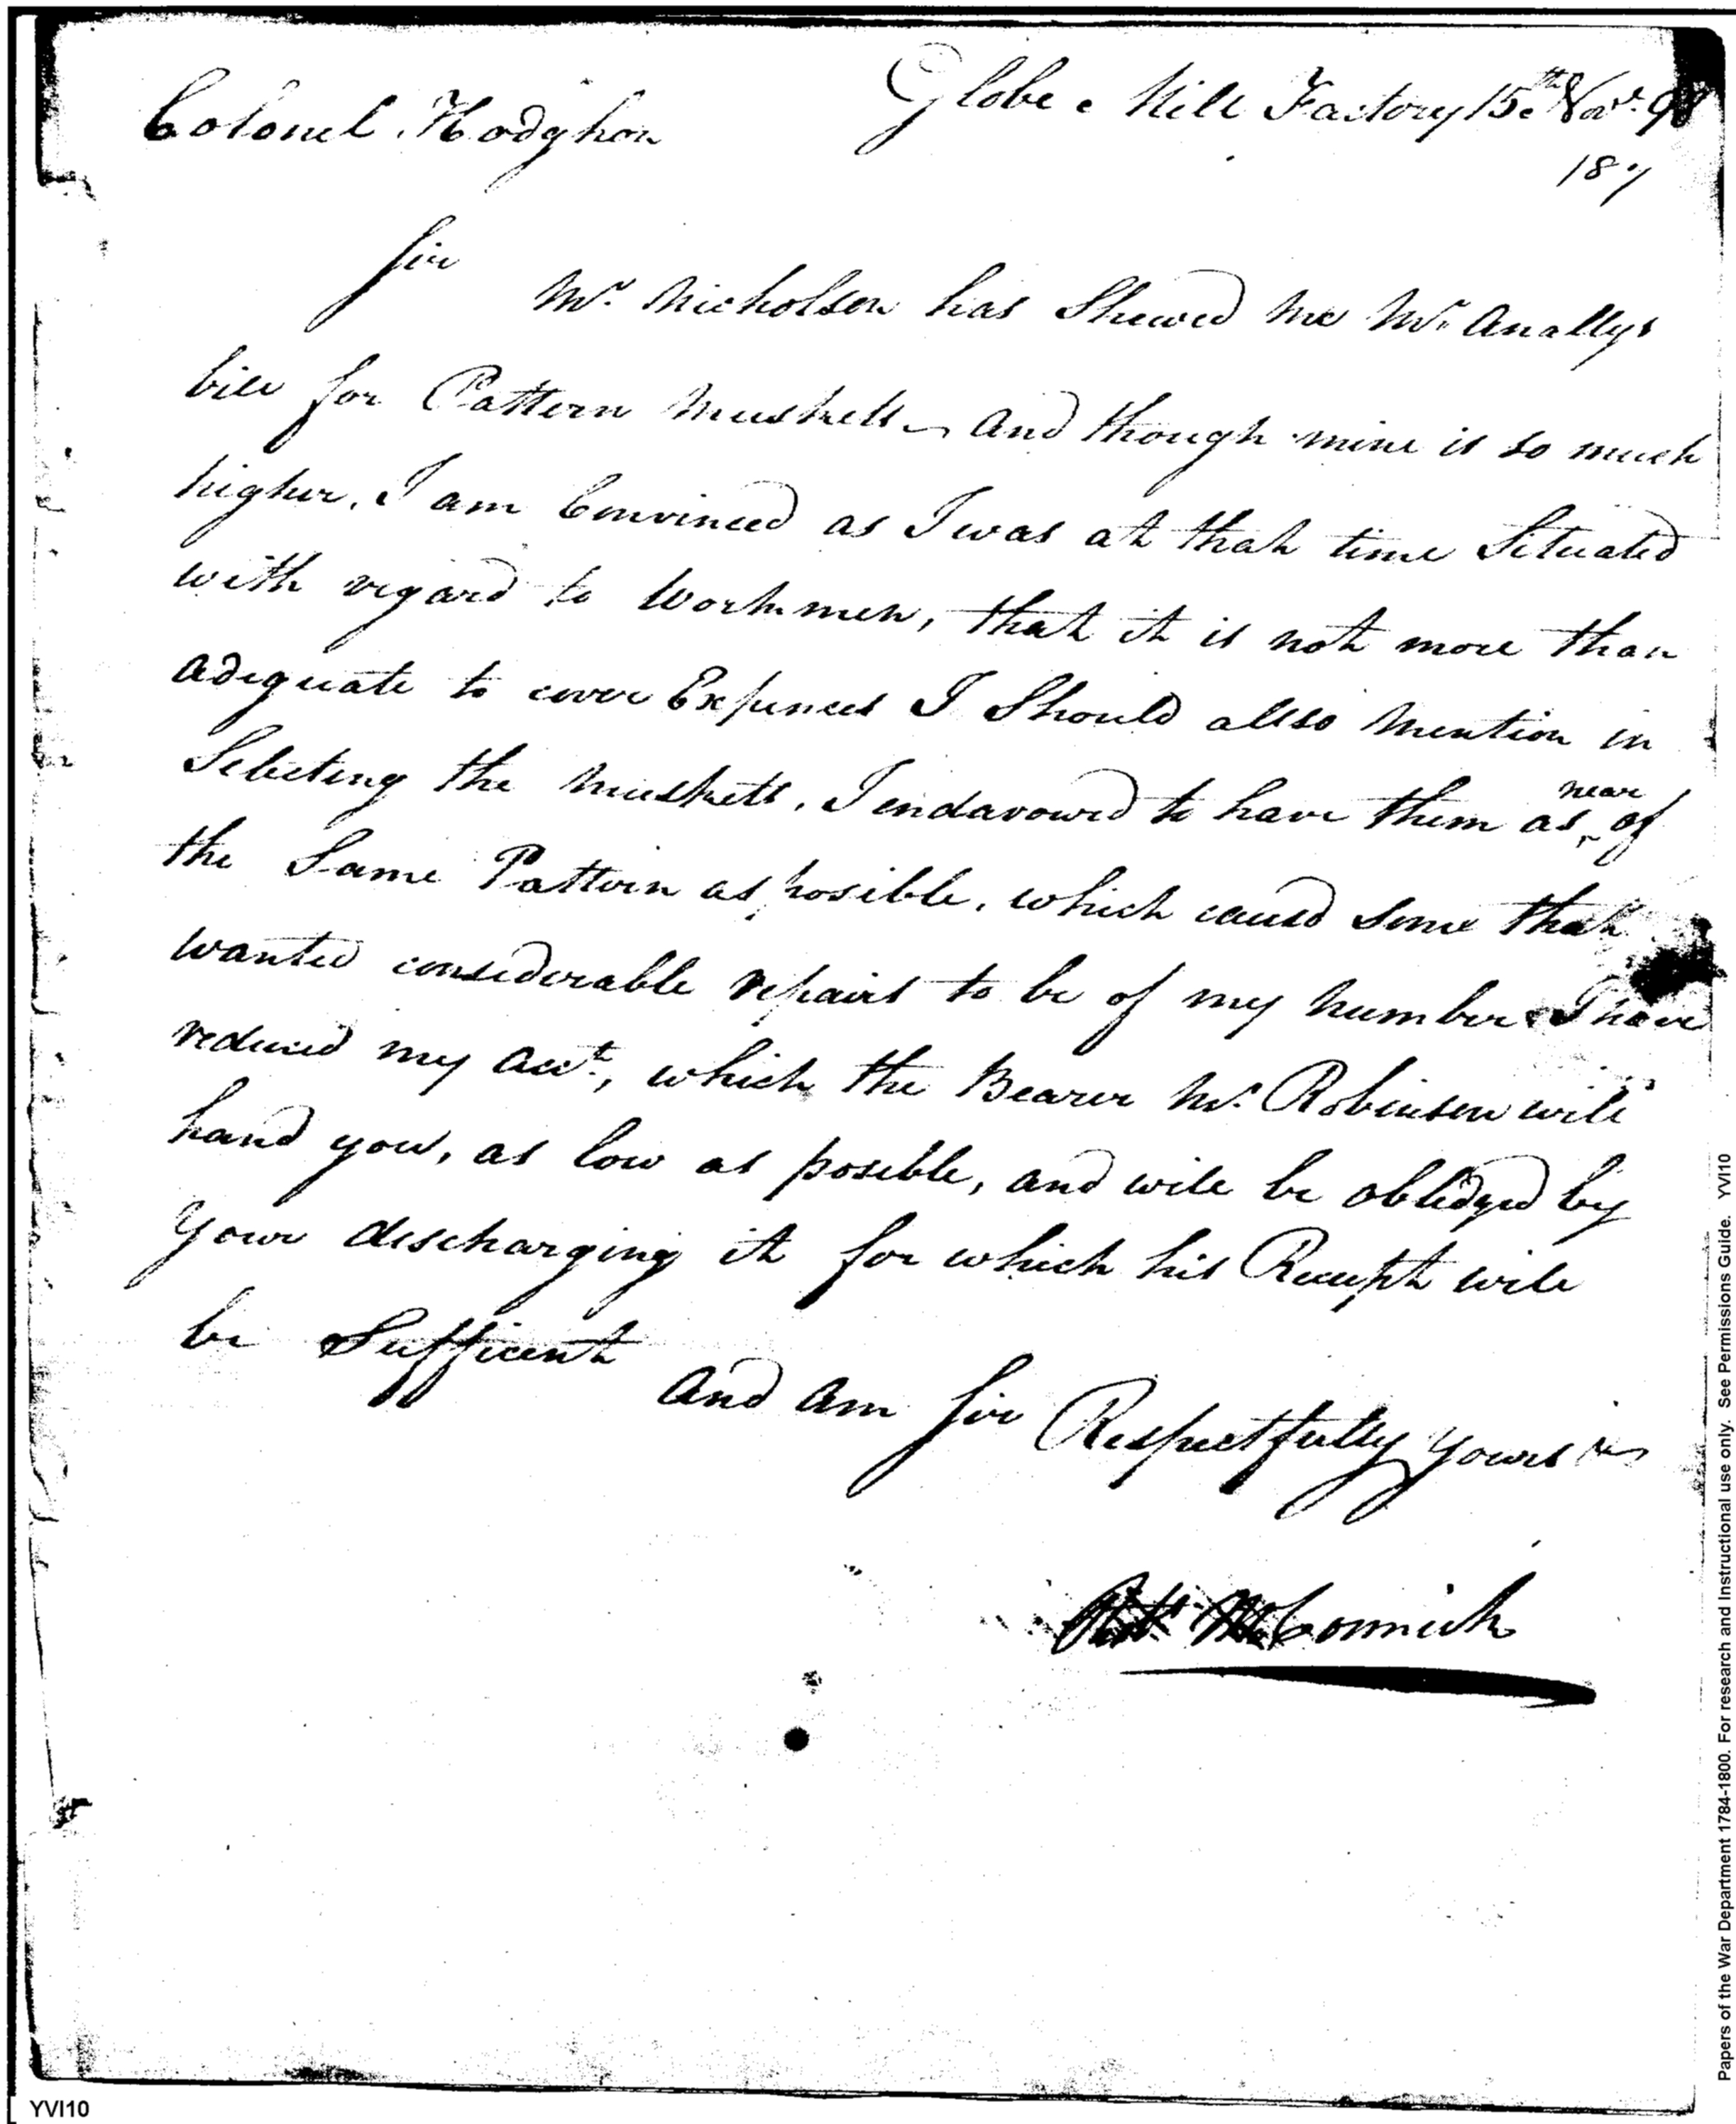 Globe Mill Factory 15th Novr. 98
Colonel Hodghon
187
Sir
Mr. Nicholson has Shewed me Mr Anallys
bill for Pattern Muskets and though mine is so much
higher, I am Convinced as I was at that time Situated
with regard to Workmen, that it is not more than
adequate to cover Expences I Should allso Mention in
Selecting the Muskets, I endavoured to have them as near of
the Same Pattern as posible, which caused Some that
wanted considerable repairs to be of my Number I have
reduced my Acct., which the Bearer Mr. Robinson will
hand you, as low as posible, and will be obledged by
Your discharging it for which his Receipt will
be Sufficent
and am Sir Respectfully Yours
Robt. McCormick
Papers of the War Department 1784-1800. For research and Instructional use only. See Permissions Guide. YVI10
YVI10